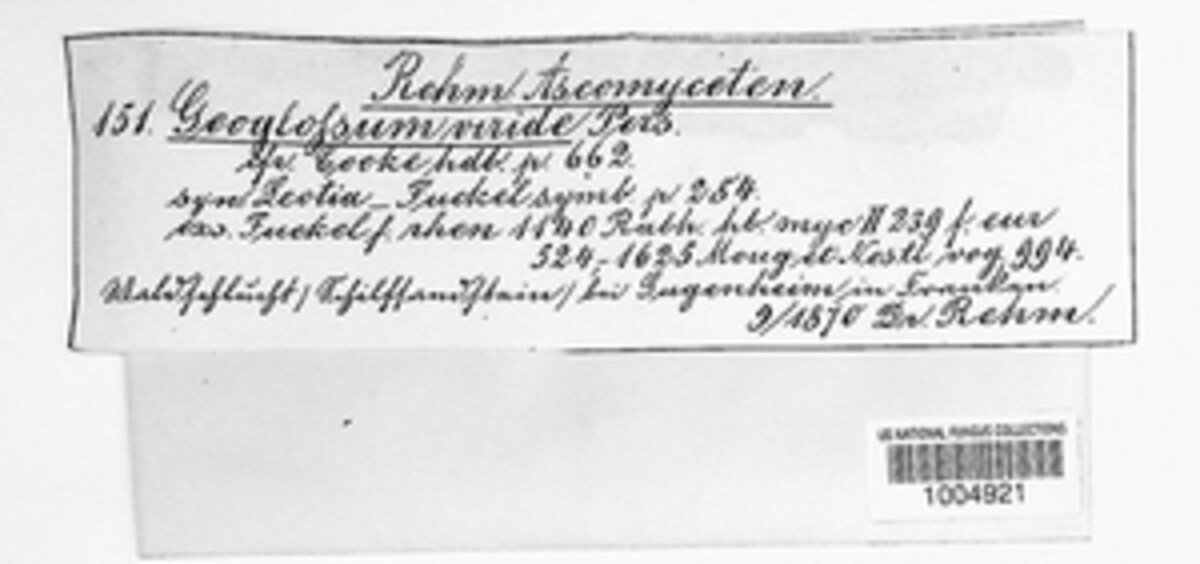 Rehm Ascomyceten.
151. Geoglossum viride Pers.
cfr. Cooke hdb. p. 662.
syn Leotia – Fuckel symb. p 284.
exs. Fuckel f. rhen 1140 Rabh. hb. myc II 239 f. eur
524,–1625 Moug et Nestl vog 994.
Waldschlucht / Schilfsandstein / bei Sugenheim in Franken.
9/1870 Dr. Rehm.
US NATIONAL FUNGUS COLLECTIONS
1004921